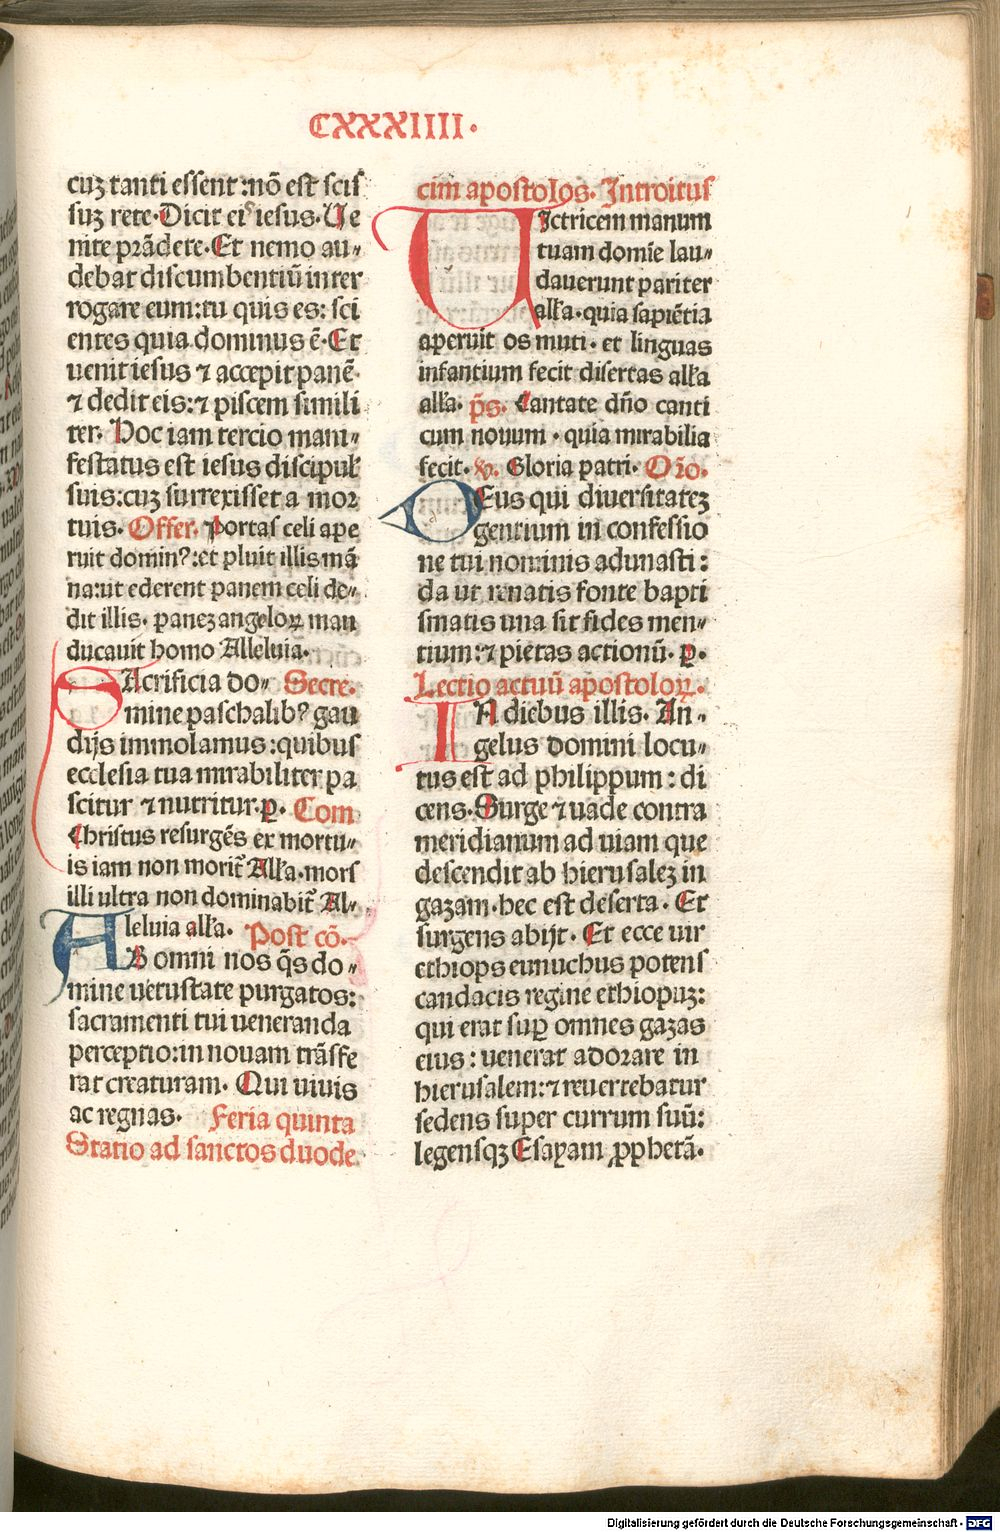 CXXXIIII.
cuꝫ tanti essent :nō est scis
suꝫ rete. Dicit eiˢ iesus. Ue
nite prādete. Et nemo au⸗
debat discumbentiū inter
rogare eum:tu quis es: sci
entes quia dominus ē. Et
uenit iesus ⁊ accepit panē.
⁊ dedit eis:⁊ piscem simili
ter. Hoc iam tercio mani⸗
festatus est iesus discipuł
suis:cuꝫ surrexisset a mor
tuis. Offer. Portas celi ape
ruit domin⁹:et pluit illis mā
na:ut ederent panem celi de⸗
dit illis. paneꝫ angeloꝝ man
ducauit homo Alleluia.
SAcrificia do⸗ Secre.
mine paschalib⁹ gau
dijs immolamus:quibus
ecclesia tua mirabiliter pa
scitur ⁊ nutritur.ꝑ. Com
Christus resurgēs ex mortu⸗
is iam non morit̄ Ałła.mors
illi ultra non dominabit̄ Al⸗
leluia ałła. Post cō.
AB omni nos q̄s do⸗
mine uetustate purgatos:
sacramenti tui ueneranda
perceptio:in nouam trāsfe
rat creaturam. Qui uiuis
ac regnas. Feria quinta
Statio ad sanctos duode
cim apostolos. Introitus
UIctricem manum
tuam domīe lau⸗
dauerunt pariter
ałła.quia sapiētia
aperuit os muti. et linguas
infantium fecit disertas ałła
ałła. p̄s. Cantate dn̄o canti
cum nouum. quia mirabilia
fecit. ꝟ. Gloria patri. Or̄o.
DEus qui diuersitateꝫ
gentium in confessio
ne tui nominis adunasti:
da ut renatis fonte bapti
smatis una sit fides men⸗
tium:⁊ pietas actionū. ꝑ.
Lectio actuū apostoloꝝ.
IN diebus illis. An⸗
gelus domini locu⸗
tus est ad philippum: di
cens. Surge ⁊ uade contra
meridianum ad uiam que
descendit ab hierusaleꝫ in
gazam.hec est deserta. Et
surgens abijt. Et ecce uir
ethiops eunuchus potens
candacis regine ethiopuꝫ:
qui erat suꝑ omnes gazas
eius: uenerat adorare in
hierusalem:⁊ reuertebatur
sedens super currum suū:
legensqꝫ Esayam ꝓphetā.
Digitalisierung gefördert durch die Deutsche Forschungsgemeinschaft - DFG